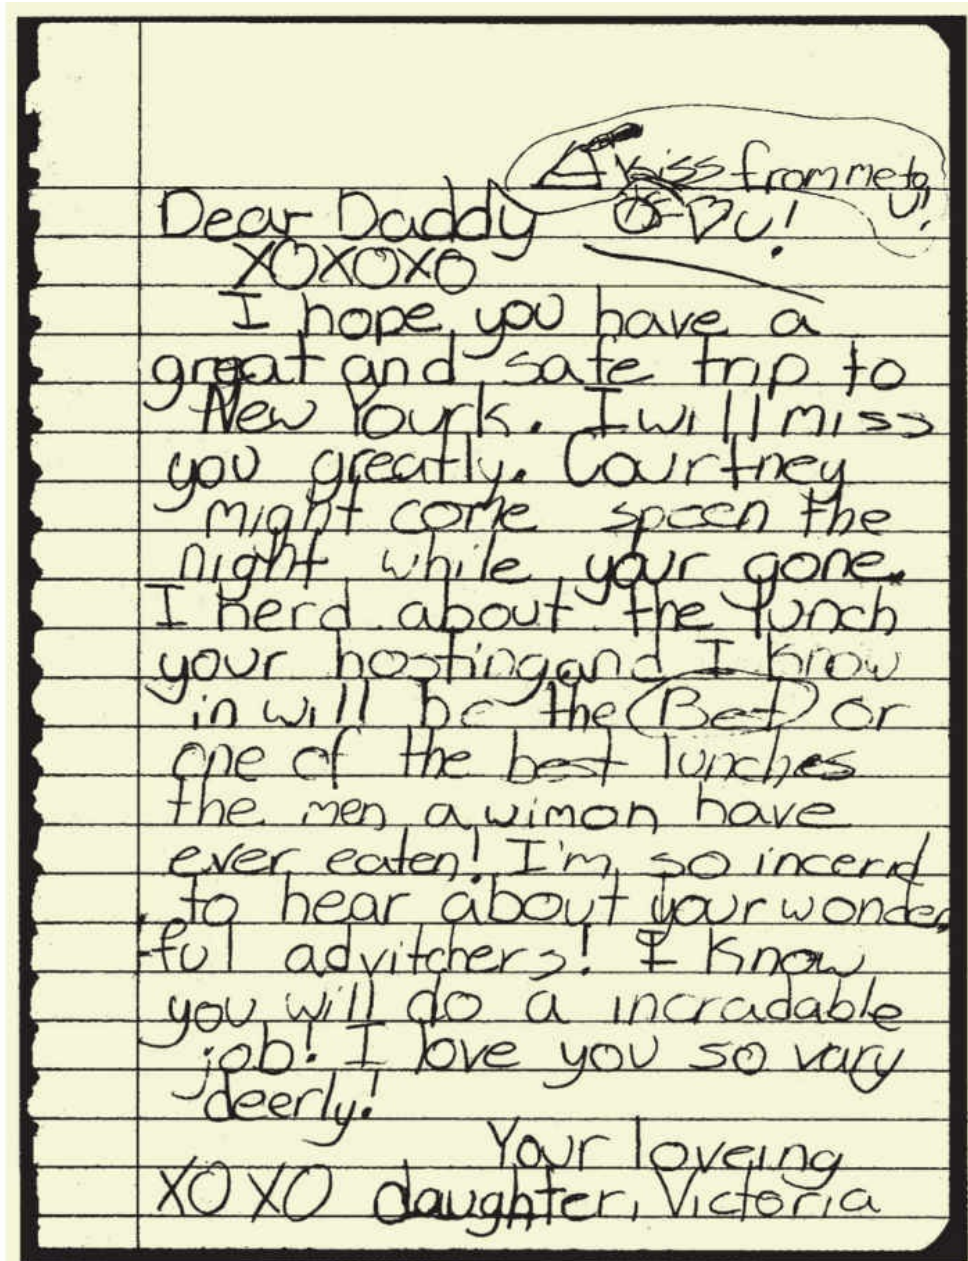 kiss from me to
U!
Dear Daddy
U!
XOXOXO
I hope you have a
great and safe trip to
New Yourk. I will miss
you greatly. Courtney
might come speen the
night while your gone.
I herd about the lunch
your hosting and I know
in will be the Bet or
one of the best lunches
the men a wimon have
ever eaten! I'm so incerd
to hear about your wonder
ful advitchers! I know
you will do a incradable
job! I love you so vary
deerly!
Your loveing
XOXO daughter, Victoria